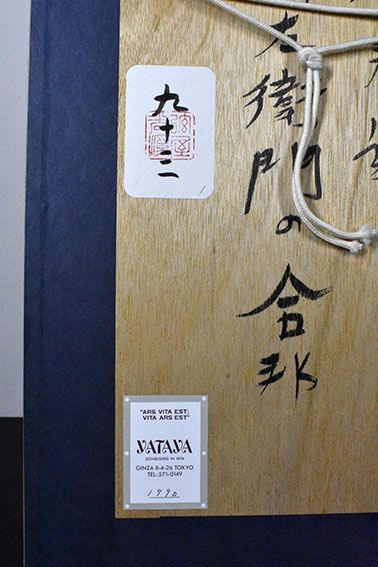 左衛門の合邦
九十二
"ARS VITA EST;
VITA ARS EST"
YATAYA
ESTABLISHED IN
GINZA 8-4-26 TOKYO
TEL:571-0149